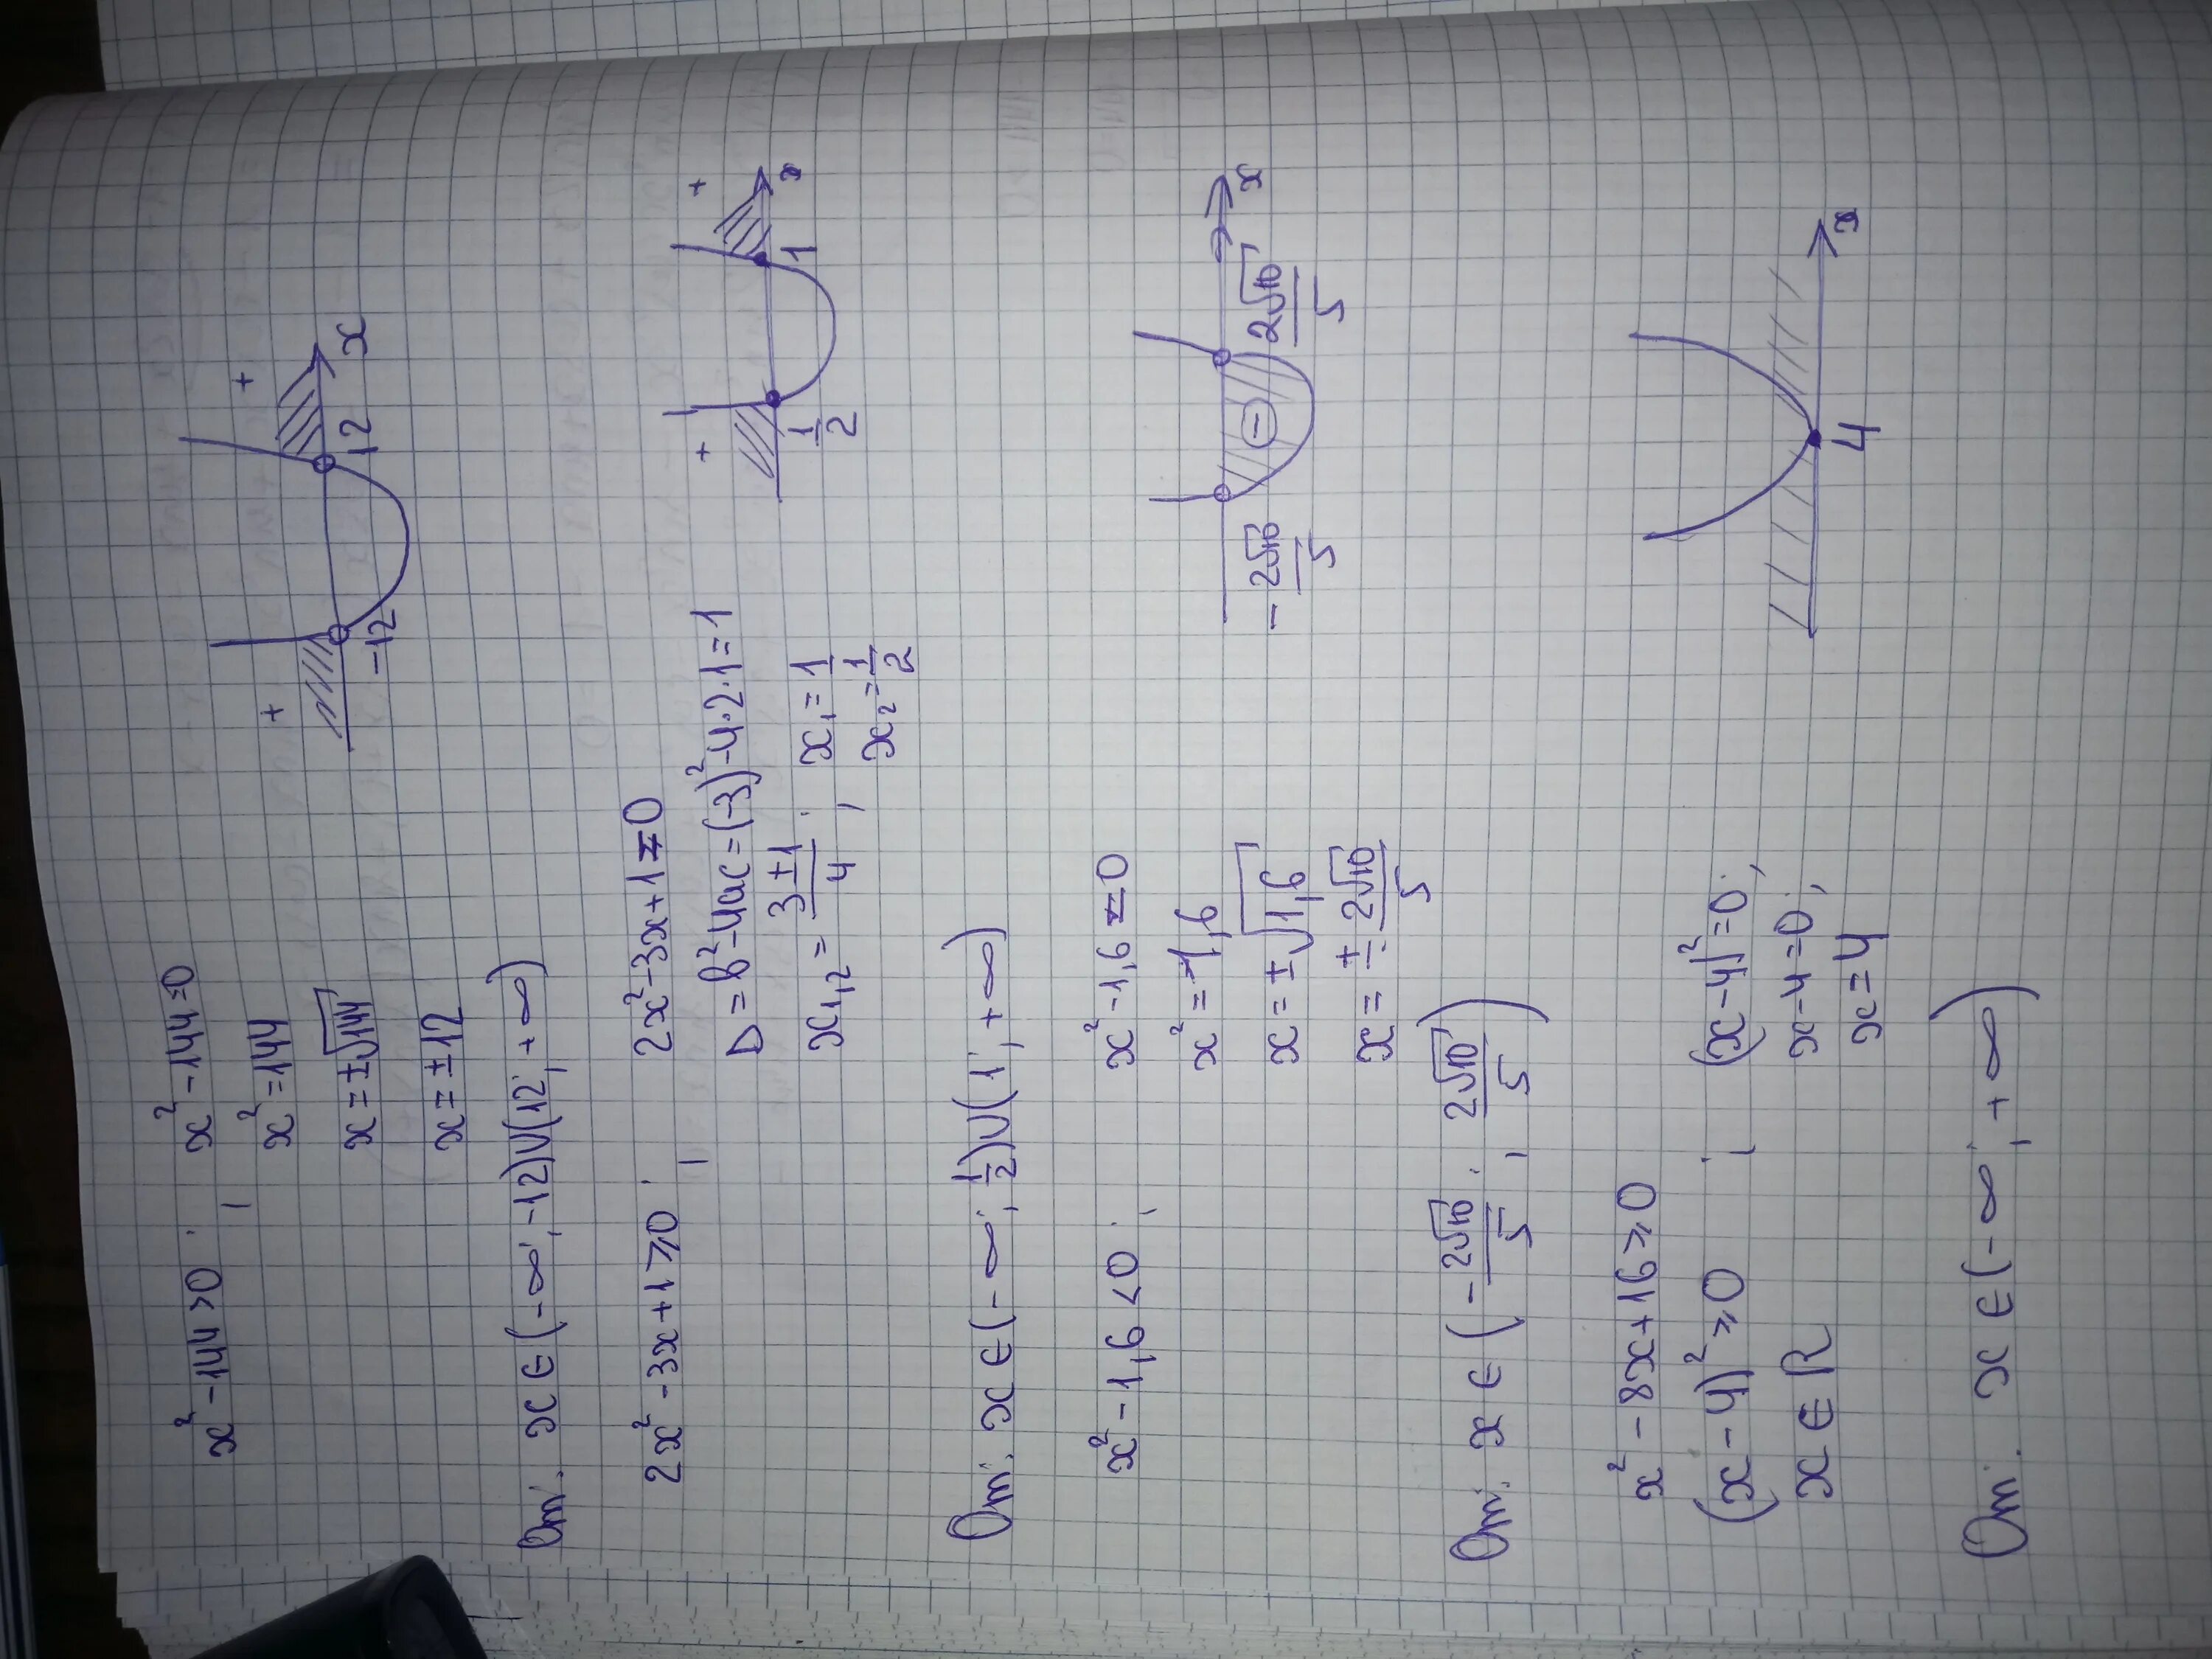 x² - 144 > 0; x² - 144 = 0
x² = 144
x = ±√144
x = ±12
+ +
-12 12 x
От: x ∈ (-∞; -12)∪(12; +∞)
2x² - 3x + 1 ≥ 0; 2x² - 3x + 1 = 0
D = b² - 4ac = (-3)² - 4·2·1 = 1
x₁,₂ = (3 ± 1)/4; x₁ = 1
x₂ = 1/2
+ +
1/2 1 x
От: x ∈ (-∞; 1/2)∪(1; +∞)
x² - 1,6 < 0; x² - 1,6 = 0
x² = 1,6
x = ±√1,6
x = ± 2√10/5
-
-2√10/5 2√10/5 x
От: x ∈ (-2√10/5; 2√10/5)
x² - 8x + 16 ≥ 0
(x - 4)² ≥ 0; (x - 4)² = 0;
x ∈ R x - 4 = 0;
x = 4
4 x
От: x ∈ (-∞; +∞)